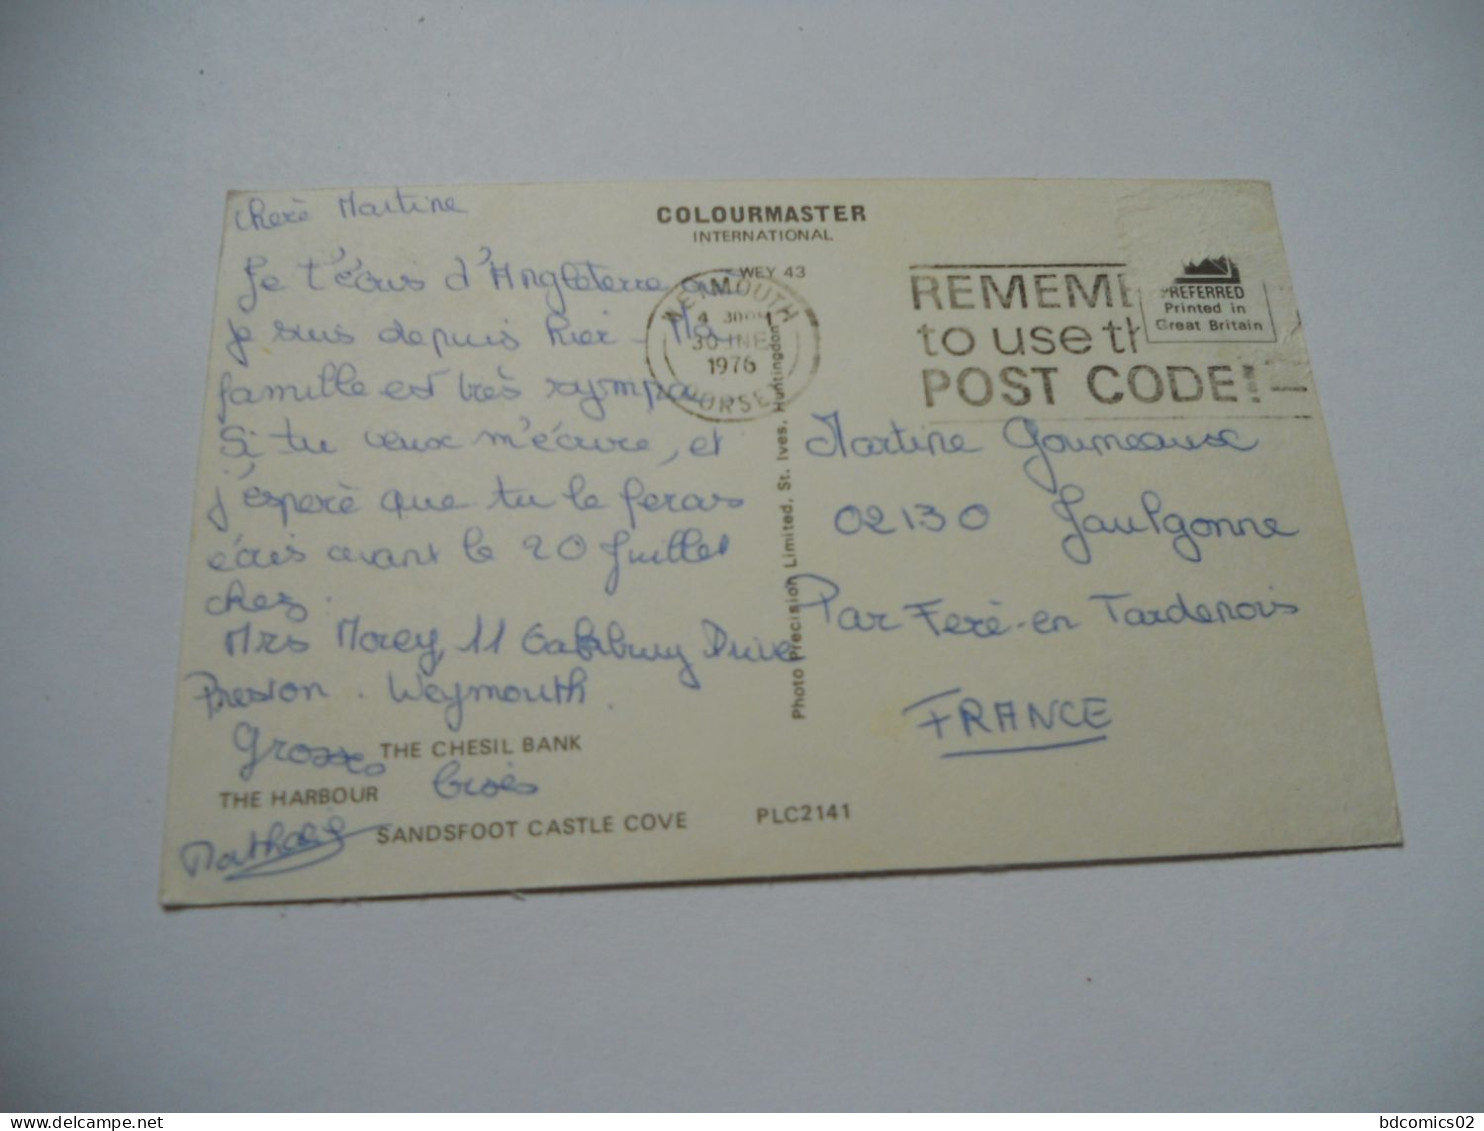 Cherè Martine
Je t'écris d'Angleterre où
je suis depuis hier - Ma
famille est très sympa
Si tu veux m'écrire, et
j'esperè que tu le feras
écris avant le 20 Juillet
chez :
Mrs Morey, 11 Drive
Preston . Weymouth .
Grosses
bises
Nathalie
THE CHESIL BANK
THE HARBOUR
SANDSFOOT CASTLE COVE
PLC2141
COLOURMASTER
INTERNATIONAL
WEY 43
WEYMOUTH
30 JNE
1976
DORSET
Photo Precision Limited, St. Ives, Huntingdon
REMEMB
to use th
POST CODE!
PREFERRED
Printed in
Great Britain
Martine Goumeaux
02130 Jaulgonne
Par Ferè-en Tardenois
FRANCE
bdcomics02